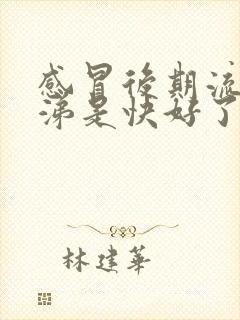 感冒後期流
涕是快好了
林建華